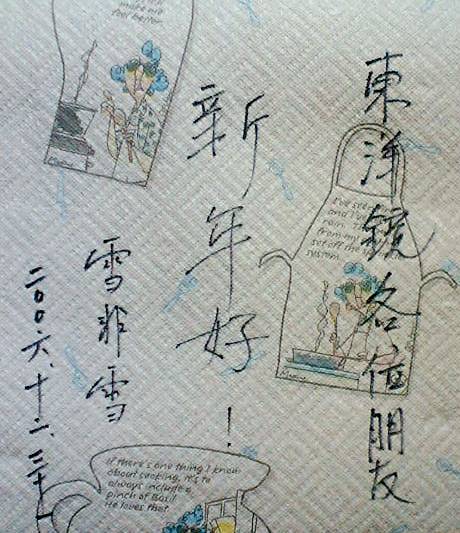 東洋鏡各位朋友
新年好！
雪非雪
二〇〇六、十二、三十一
more are
feel better.
I've see
and I've
rain. Th
from my
set off the
system.
If there's one thing I know
about cooking, it's to
always include a
pinch of Basil
He loves that